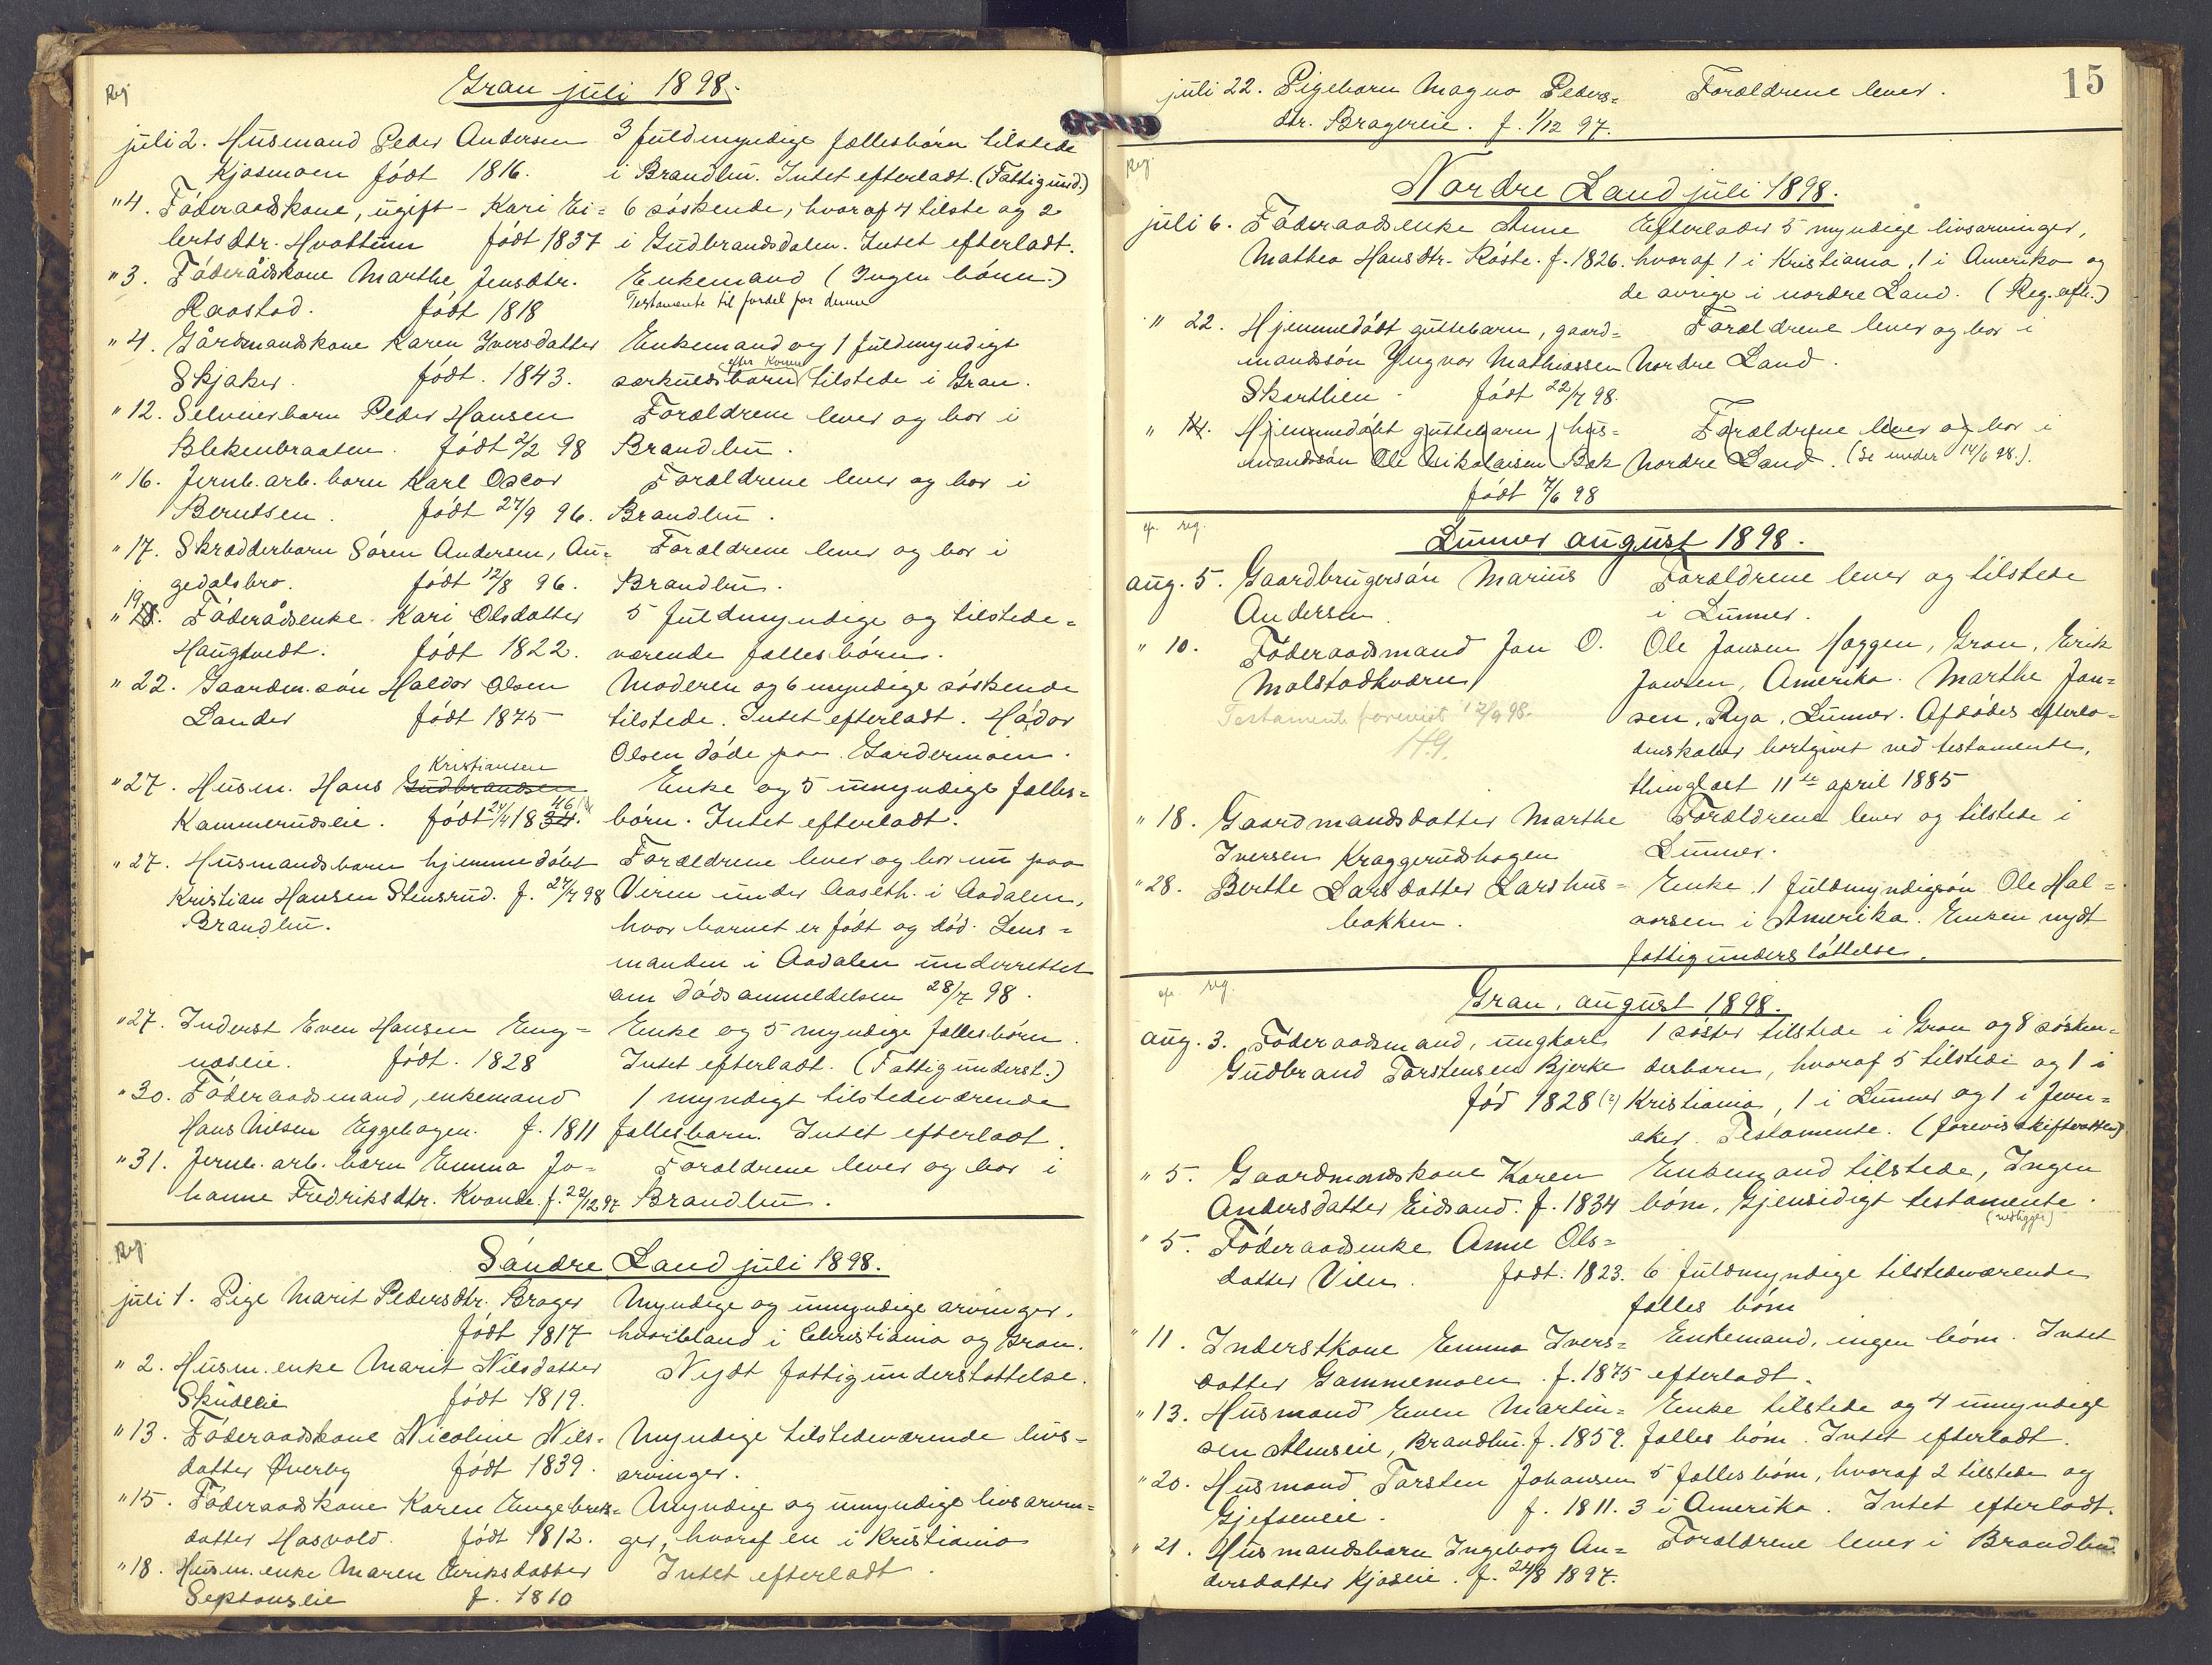 Reg.
Gran juli 1898.
juli 2. Husmand Peder Andersen 3 fuldmyndige fællesbørn tilstede
Kjosmoen født 1816. i Brandbu. Intet efterladt. (Fattigund.)
" 4. Föderaadskone, ugift - Kari Ei= 6 söskende, hvoraf 4 tilste og 2
lertsdtr. Hvattum født 1837 i Gudbrandsdalen. Intet efterladt.
" 3. Föderådskone Marthe Jensdtr. Enkemand (Ingen börn.)
Raastad. født 1818 Testamente til fordel for denne
" 4. Gårdmandskone Karen Iversdatter Enkemand og 1 fuldmyndigt
Skjaker. født. 1843. særkuldsbarn efter konen tilstede i Gran.
" 12. Selveierbarn Peder Hansen Forældrene lever og bor i
Blekenbraaten. født 2/2 98 Brandbu.
" 16. Jernb. arb. barn Karl Oscar Forældrene lever og bor i
Berntsen. født 27/9 96. Brandbu.
" 17. Skrædderbarn Sören Andersen, Au= Forældrene lever og bor i
gedalsbro. født 12/8 96. Brandbu.
" 19. Föderådsenke Kari Olsdatter 5 fuldmyndige og tilstede=
Haugtvedt. født 1822. værende fællesbörn.
" 22. Gaardm. sön Haldor Olsen Moderen og 6 myndige söskende
Lander født 1875 tilstede. Intet efterladt. Hádor
Olsen döde paa Gardermoen.
" 27. Husm. Hans Gudbrandsen Kristiansen Enke og 5 umyndige fælles=
Kammerudseie. født 24/4 1834. 46 börn. Intet efterladt.
" 27. Husmandsbarn hjemmedöbt Forældrene lever og bor nu paa
Kristian Hansen Stensrud. f. 27/7 98 Viren under Aaseth i Aadalen,
Brandbu. hvor barnet er født og död. Lens=
manden i Aadalen underrettet
om dödsanmeldelsen 28/7 98.
" 27. Inderst Even Hansen Eng= Enke og 5 myndige fællesbörn.
naseie. født. 1828 Intet efterladt. (Fattigunderst.)
" 30. Föderaadsmand, enkemand 1 myndigt tilstedeværende
Hans Nilsen Eggehagen. f. 1811 fællesbarn. Intet efterladt.
" 31. Jernb. arb. barn Emma Jo= Forældrene lever og bor i
hanne Fredriksdtr. Kvande. f. 22/12 97 Brandbu.
Reg.
Söndre Land juli 1898.
juli 1. Pige Marit Pedersdtr. Brager Myndige og umyndige arvinger,
født 1817 hvoribland i Christiania og Gran.
" 2. Husm. enke Marit Nilsdatter Nydt fattigunderstøttelse.
Skudeie født 1819.
" 13. Föderaadskone Nicoline Nils= Myndige tilstedeværende livs=
datter Øverby født 1839. arvinger.
" 15. Föderaadskone Karen Engebrets= Myndige og umyndige livsarvin=
datter Hasvold. født 1812. ger, hvoraf en i Kristiania
" 18. Husm. enke Maren Eriksdatter Intet efterladt.
Septonseie f. 1810
15
juli 22. Pigebarn Magna Peders= Forældrene lever.
dtr. Bragereie. f. 1/12 97.
Reg.
Nordre Land juli 1898.
juli 6. Föderaadsenke Anne Efterlader 5 myndige livsarvinger,
Mathea Hansdtr. Röste. f. 1826. hvoraf 1 i Kristiania, 1 i Amerika og
de øvrige i nordre Land. (Reg. afh.)
" 22. Hjemmedöbt guttebarn, gaard= Forældrene lever og bor i
mandssön Yngvar Mathiassen Nordre Land.
Skartlien. født 22/7 98.
" 14. Hjemmedöbt guttebarn, hus= Forældrene lever og bor i
mandssön Ole Nikolaisen Bak Nordre Land. (Se under 14/6 98.).
født 7/6 98
ep. reg.
Lunner august 1898.
aug. 5. Gaardbrugersön Marius Forældrene lever og tilstede
Andersen. i Lunner.
" 10. Föderaadsmand Jon O. Ole Jonsen Haggen, Gran, Erik
Molstadkværn Jonsen, Amerika. Marthe Jon=
Testamente forevist 12/9 98. sen, Rya, Lunner. Afdödes efterla=
denskaber bortgivet ved testamente,
thinglæst 11te april 1885
" 18. Gaardmandsdatter Marthe Forældrene lever og tilstede i
Iversen Kraggerudshagen Lunner.
" 28. Berthe Larsdatter Larshus= Enke, 1 fuldmyndigsön Ole Hal=
bakken. vorsen i Amerika. Enken nydt
fattigunderstöttelse.
ep. reg.
Gran, august 1898.
aug. 3. Föderaadsmand, ungkarl 1 söster tilstede i Gran og 8 sösken=
Gudbrand Torstensen Bjerke derbarn, hvoraf 5 tilstede og 1 i
föd 1828 (?) Kristiania, 1 i Lunner og 1 i Jevn=
aker. Testamente. (forevis skifteretten)
" 5. Gaardmandskone Karen Enkemand tilstede, Ingen
Andersdatter Eidsand. f. 1834 börn, Gjensidigt testamente.
(vedligger)
" 5. Föderaadsenke Anne Ols=
datter Vien. født: 1823. 6 fuldmyndige tilstedeværende
fælles börn
" 11. Inderstkone Emma Ivers= Enkemand, ingen börn. Intet
datter Gammemoen. f. 1875 efterladt.
" 13. Husmand Even Martin= Enke tilstede og 4 umyndige
sen Almseie, Brandbu. f. 1859. fælles börn. Intet efterladt.
" 20. Husmand Torsten Johansen 5 fælles börn, hvoraf 2 tilstede og
Gjefseneie. f. 1811. 3 i Amerika. Intet efterladt.
" 21. Husmandsbarn Ingeborg An= Forældrene lever i Brandbu
dersdatter Kjoseie. f. 24/8 1897.